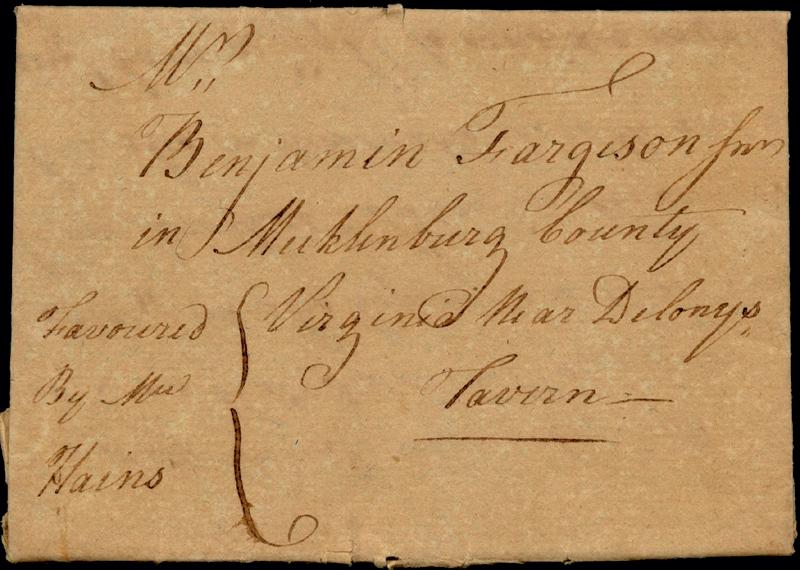 Mr,,
Benjamin Fargison Snr
in Mecklenburg County
Virginia Near Delonys
Tavern —
Favoured
By Mrs
Hains